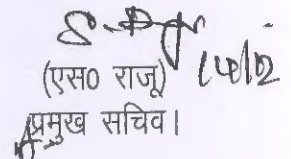 (एस0 राजू)
प्रमुख सचिव।